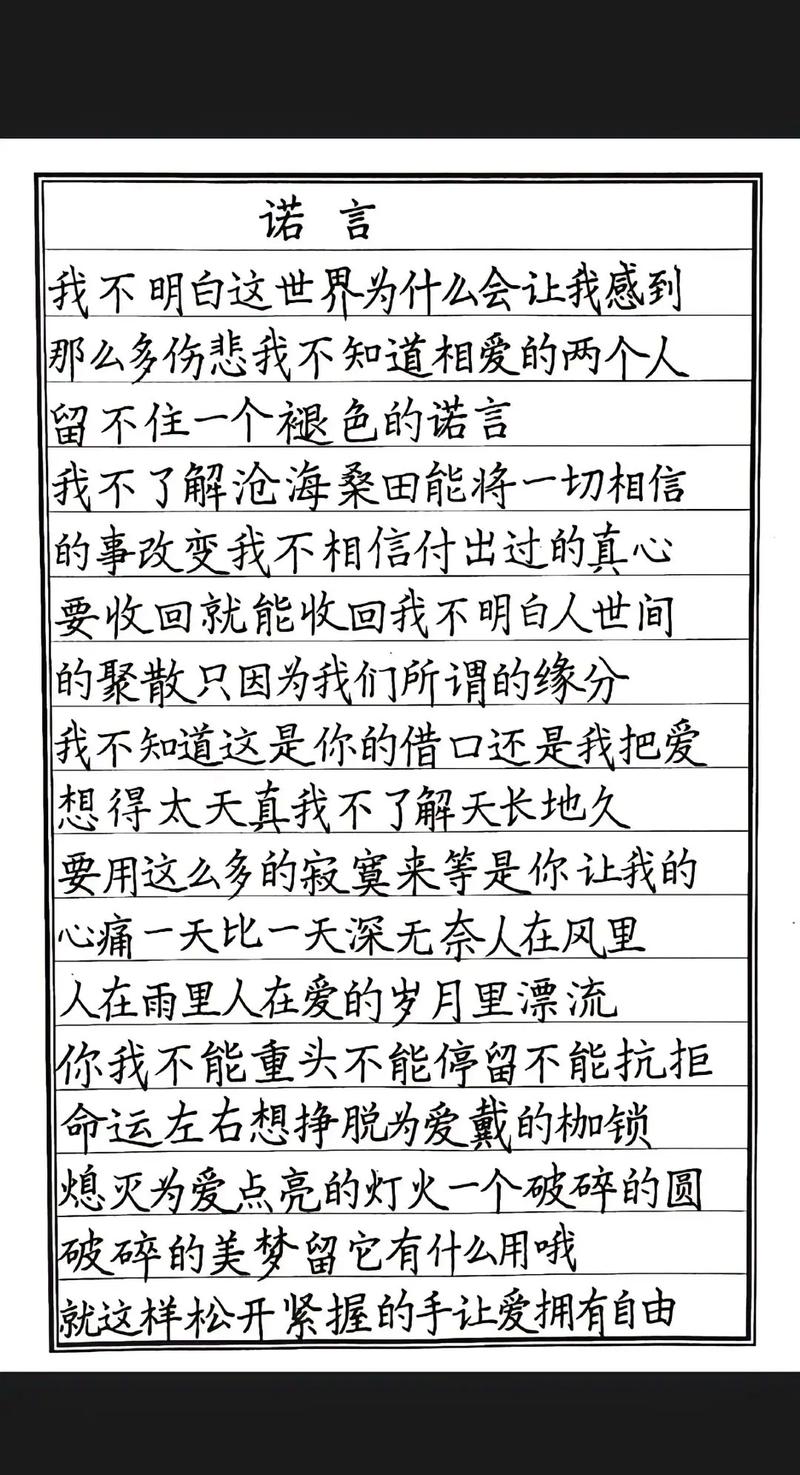 诺言
我不明白这世界为什么会让我感到
那么多伤悲我不知道相爱的两个人
留不住一个褪色的诺言
我不了解沧海桑田能将一切相信
的事改变我不相信付出过的真心
要收回就能收回我不明白人世间
的聚散只因为我们所谓的缘分
我不知道这是你的借口还是我把爱
想得太天真我不了解天长地久
要用这么多的寂寞来等是你让我的
心痛一天比一天深无奈人在风里
人在雨里人在爱的岁月里漂流
你我不能重头不能停留不能抗拒
命运左右想挣脱为爱戴的枷锁
熄灭为爱点亮的灯火一个破碎的圆
破碎的美梦留它有什么用哦
就这样松开紧握的手让爱拥有自由